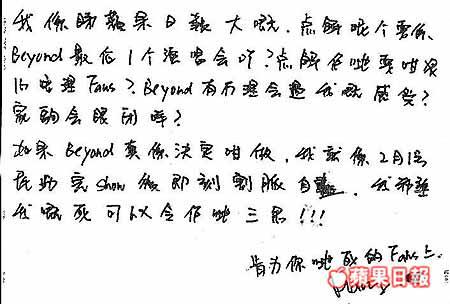 我係睇蘋果日報大嘅,点解呢个要係
Beyond最后1个演唱会吖?点解你哋要咁狠
心唔理Fans?Beyond有冇理会過我嘅感受?
家駒会眼闭咩?
如果Beyond真係決定咁做,我就係2月1
完show後即刻割脈自
我嘅死可以令你哋三思!!!
肯为你哋死的Fans上
蘋果日報